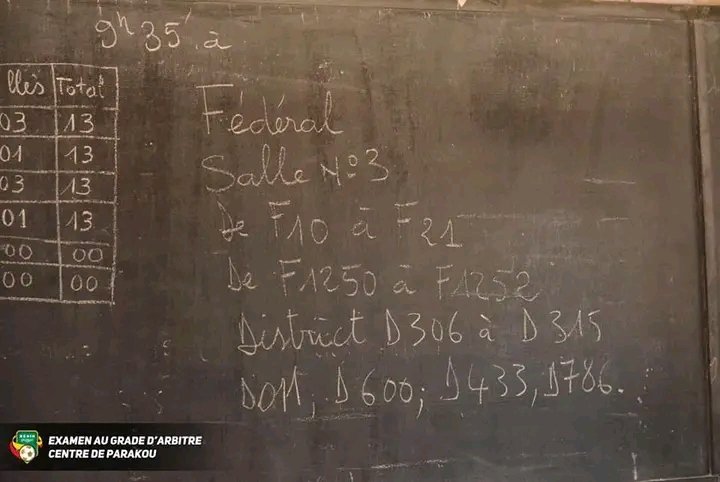 9h 35' à
lles Total
03 13
01 13
03 13
01 13
00 00
00 00
Fédéral
Salle N°3
De F10 à F21
De F1250 à F1252
District D306 à D315
D011, D600; D433, D786.
BENIN
EXAMEN AU GRADE D'ARBITRE
CENTRE DE PARAKOU